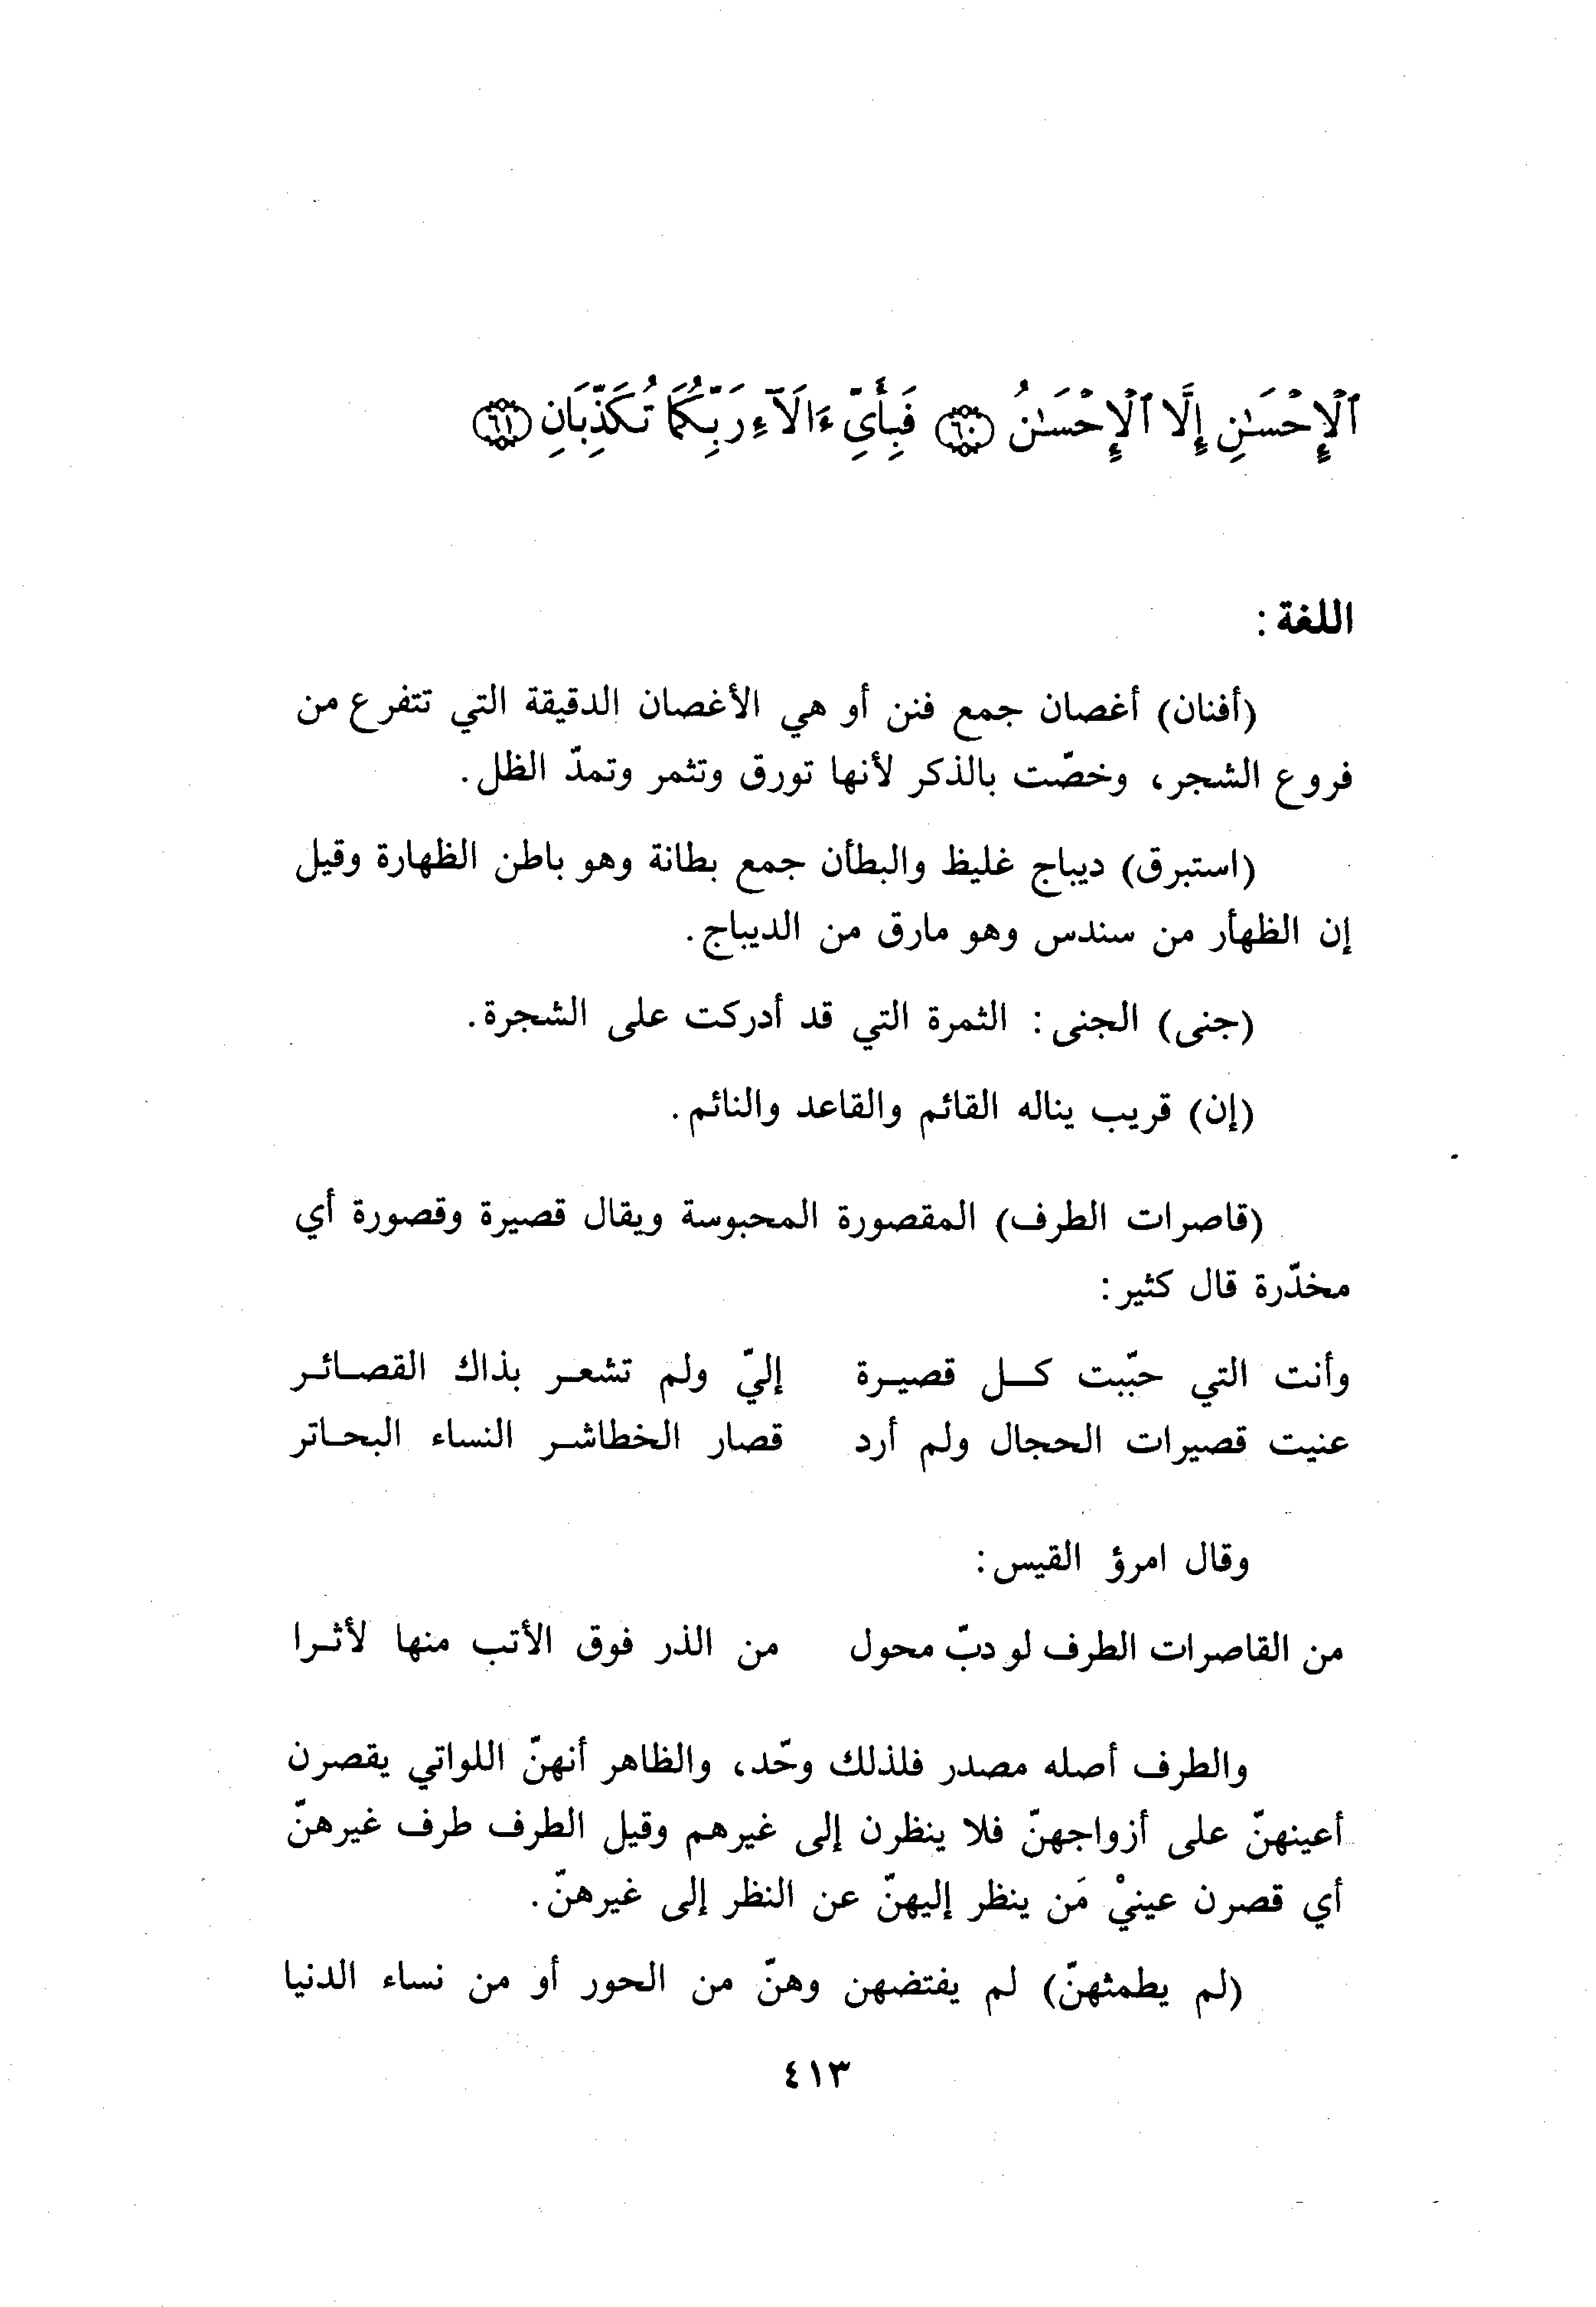 ٱلْإِحْسَٰنِ إِلَّا ٱلْإِحْسَٰنُ ۝٦٠ فَبِأَيِّ ءَالَآءِ رَبِّكُمَا تُكَذِّبَانِ ۝٦١
اللغة :
(أفنان) أغصان جمع فنن أو هي الأغصان الدقيقة التي تتفرع من
فروع الشجر، وخصّت بالذكر لأنها تورق وتثمر وتمدّ الظل.
(استبرق) ديباج غليظ والبطأن جمع بطانة وهو باطن الظهارة وقيل
إن الظهأر من سندس وهو مارق من الديباج.
(جنى) الجنى : الثمرة التي قد أدركت على الشجرة.
(إن) قريب يناله القائم والقاعد والنائم.
(قاصرات الطرف) المقصورة المحبوسة ويقال قصيرة وقصورة أي
مخدّرة قال كثير:
وأنت التي حبّبت كل قصيرة إليّ ولم تشعر بذاك القصائر
عنيت قصيرات الحجال ولم أرد قصار الخطاشر النساء البحاتر
وقال امرؤ القيس:
من القاصرات الطرف لو دبّ محول من الذر فوق الأتب منها لأثرا
والطرف أصله مصدر فلذلك وحّد، والظاهر أنهنّ اللواتي يقصرن
أعينهنّ على أزواجهنّ فلا ينظرن إلى غيرهم وقيل الطرف طرف غيرهنّ
أي قصرن عينيْ مَن ينظر إليهنّ عن النظر إلى غيرهنّ.
(لم يطمثهنّ) لم يفتضهن وهنّ من الحور أو من نساء الدنيا
٤١٣